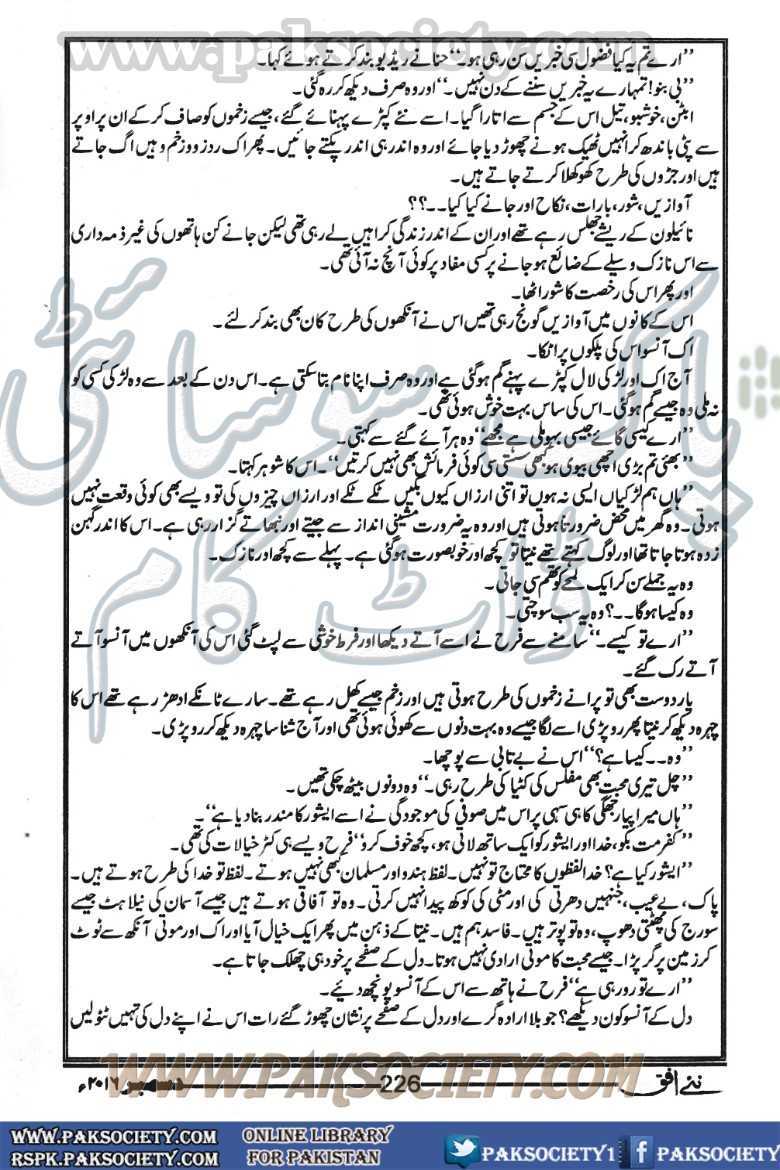 www.paksociety.com
’’ارے تم یہ کیا فضول سی خبریں سن رہی ہو۔‘‘ حنا نے ریڈیو بند کرتے ہوئے کہا۔
’’بی بنو! تمہارے یہ خبریں سننے کے دن نہیں۔‘‘ اور وہ صرف دیکھ کر رہ گئی۔
ابٹن، خوشبو، تیل اس کے جسم سے اتارا گیا۔ اسے نئے کپڑے پہنائے گئے، جیسے زخموں کو صاف کر کے ان پر اوپر
سے پٹی باندھ کر انہیں ٹھیک ہونے چھوڑ دیا جائے اور وہ اندر ہی اندر پکتے جائیں۔ پھر اک روز وہ زخم وہیں اگ جاتے
ہیں اور جڑوں کی طرح کھوکھلا کرتے جاتے ہیں۔
آوازیں، شور، بارات، نکاح اور جانے کیا کیا۔۔؟؟
نائیلون کے ریشے جھلس رہے تھے اور ان کے اندر زندگی کراہیں لے رہی تھی لیکن جانے کن ہاتھوں کی غیر ذمہ داری
سے اس نازک وسیلے کے ضائع ہو جانے پر کسی مفاد پر کوئی آنچ نہ آئی تھی۔
اور پھر اس کی رخصت کا شور اٹھا۔
اس کے کانوں میں آوازیں گونج رہی تھیں اس نے آنکھوں کی طرح کان بھی بند کر لئے۔
اک آنسو اس کی پلکوں پر اٹکا۔
آج اک اور لڑکی لال کپڑے پہنے گم ہو گئی ہے اور وہ صرف اپنا نام بتا سکتی ہے۔ اس دن کے بعد سے وہ لڑکی کسی کو
نہ ملی وہ جیسے گم ہو گئی۔ اس کی ساس بہت خوش ہوئی تھی۔
’’ارے کیسی گائے جیسی بہو ملی ہے مجھے‘‘ وہ ہر آئے گئے سے کہتی۔
’’بھئی تم بڑی اچھی بیوی ہو کبھی سستی سی کوئی فرمائش بھی نہیں کرتیں‘‘۔ اس کا شوہر کہتا۔
’’ہاں ہم لڑکیاں ایسی نہ ہوں تو اتنی ارزاں کیوں بکیں ٹکے ٹکے اور ارزاں چیزوں کی تو ویسے بھی کوئی وقعت نہیں
ہوتی۔ وہ گھر میں محض ضرورتاً ہوتی ہیں اور وہ یہ ضرورت مشینی انداز سے جیتے اور نبھاتے گزار رہی ہے۔ اس کا اندر گہن
زدہ ہوتا جاتا تھا اور لوگ کہتے تھے نیتا تو کچھ اور خوبصورت ہو گئی ہے۔ پہلے سے کچھ اور نازک۔
وہ یہ جملے سن کر ایک لمحے کو تھم سی جاتی۔
وہ کیسا ہوگا۔۔؟ وہ یہ سب سوچتی۔
’’ارے تو کیسے۔‘‘ سامنے سے فرح نے اسے آتے دیکھا اور فرط خوشی سے لپٹ گئی اس کی آنکھوں میں آنسو آتے
آتے رک گئے۔
یار دوست بھی تو پرانے زخموں کی طرح ہوتی ہیں اور زخم جیسے کھل رہے تھے۔ سارے ٹانکے ادھڑ رہے تھے اس کا
چہرہ دیکھ کر نیتا پھر رو پڑی اسے لگا جیسے وہ بہت دنوں سے کھوئی ہوئی تھی اور آج شناسا چہرہ دیکھ کر رو پڑی۔
’’وہ۔۔ کیسا ہے؟‘‘ اس نے بے تابی سے پوچھا۔
’’چل تیری محبت بھی مفلس کی کٹیا کی طرح رہی۔‘‘ وہ دونوں بیٹھ چکی تھیں۔
’’ہاں میرا پیار جھگی کا ہی سہی پر اس میں صوفی کی موجودگی نے اسے ایشور کا مندر بنا دیا ہے‘‘۔
’’کفر مت بکو، خدا اور ایشور کو ایک ساتھ لاتی ہو، کچھ خوف کرو‘‘ فرح ویسے ہی کٹر خیالات کی تھی۔
’’ایشور کیا ہے؟ خدا لفظوں کا محتاج تو نہیں۔ لفظ ہندو اور مسلمان کبھی نہیں ہوتے۔ لفظ تو خدا کی طرح ہوتے ہیں۔
پاک، بے عیب، جنہیں دھرتی کی اور مٹی کی کوکھ پیدا نہیں کرتی۔ وہ تو آفاقی ہوتے ہیں جیسے آسمان کی نیلاہٹ جیسے
سورج کی پھٹتی دھوپ، وہ تو پوتر ہیں۔ فاسد ہم ہیں۔ نیتا کے ذہن میں پھر ایک خیال آیا اور اک اور موتی آنکھ سے ٹوٹ
کر زمین پر گر پڑا۔ جیسے محبت کا موتی ارادی نہیں ہوتا۔ دل کے صفحے پر خود ہی چھلک جاتا ہے۔
’’ارے تو رو رہی ہے‘‘ فرح نے ہاتھ سے اس کے آنسو پونچھ دیئے۔
دل کے آنسو کون دیکھے؟ جو بلا ارادہ گرے اور دل کے صفحے پر نشان چھوڑ گئے رات اس نے اپنے دل کی تہیں ٹٹولیں
پاک سوسائٹی
ڈاٹ کام
WWW.PAKSOCIETY.COM
نئے افق 226 دسمبر ۲۰۱۶ء
WWW.PAKSOCIETY.COM ONLINE LIBRARY PAKSOCIETY1 f PAKSOCIETY
RSPK.PAKSOCIETY.COM FOR PAKISTAN